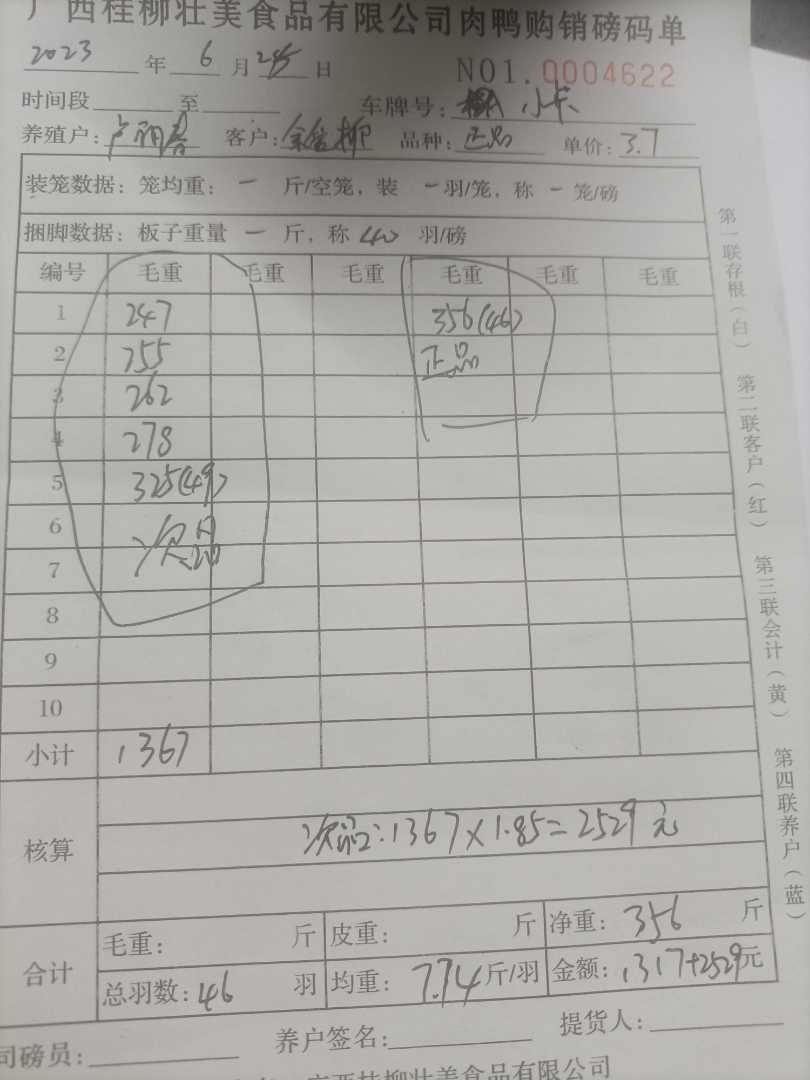 广西桂柳壮美食品有限公司肉鸭购销磅码单
2023 年 6 月 24 日 NO1.0004622
时间段 至 车牌号: 小卡
养殖户: 客户: 品种: 正品 单价: 3.7
装笼数据: 笼均重: 一 斤/空笼, 装 一 羽/笼, 称 一 笼/磅
捆脚数据: 板子重量 一 斤, 称 40 羽/磅
编号 毛重 毛重 毛重 毛重 毛重 毛重
1 247 356(46)
2 255 正品
3 262
4 278
5 325(49)
6 次品
7
8
9
10
小计 1367
核算 次品:1367×1.85=2529元
合计 毛重: 斤 皮重: 斤 净重: 356 斤
总羽数: 46 羽 均重: 7.74 斤/羽 金额: 1317+2529元
司磅员: 养户签名: 提货人:
广西桂柳壮美食品有限公司
第一联存根(白) 第二联客户(红) 第三联会计(黄) 第四联养户(蓝)